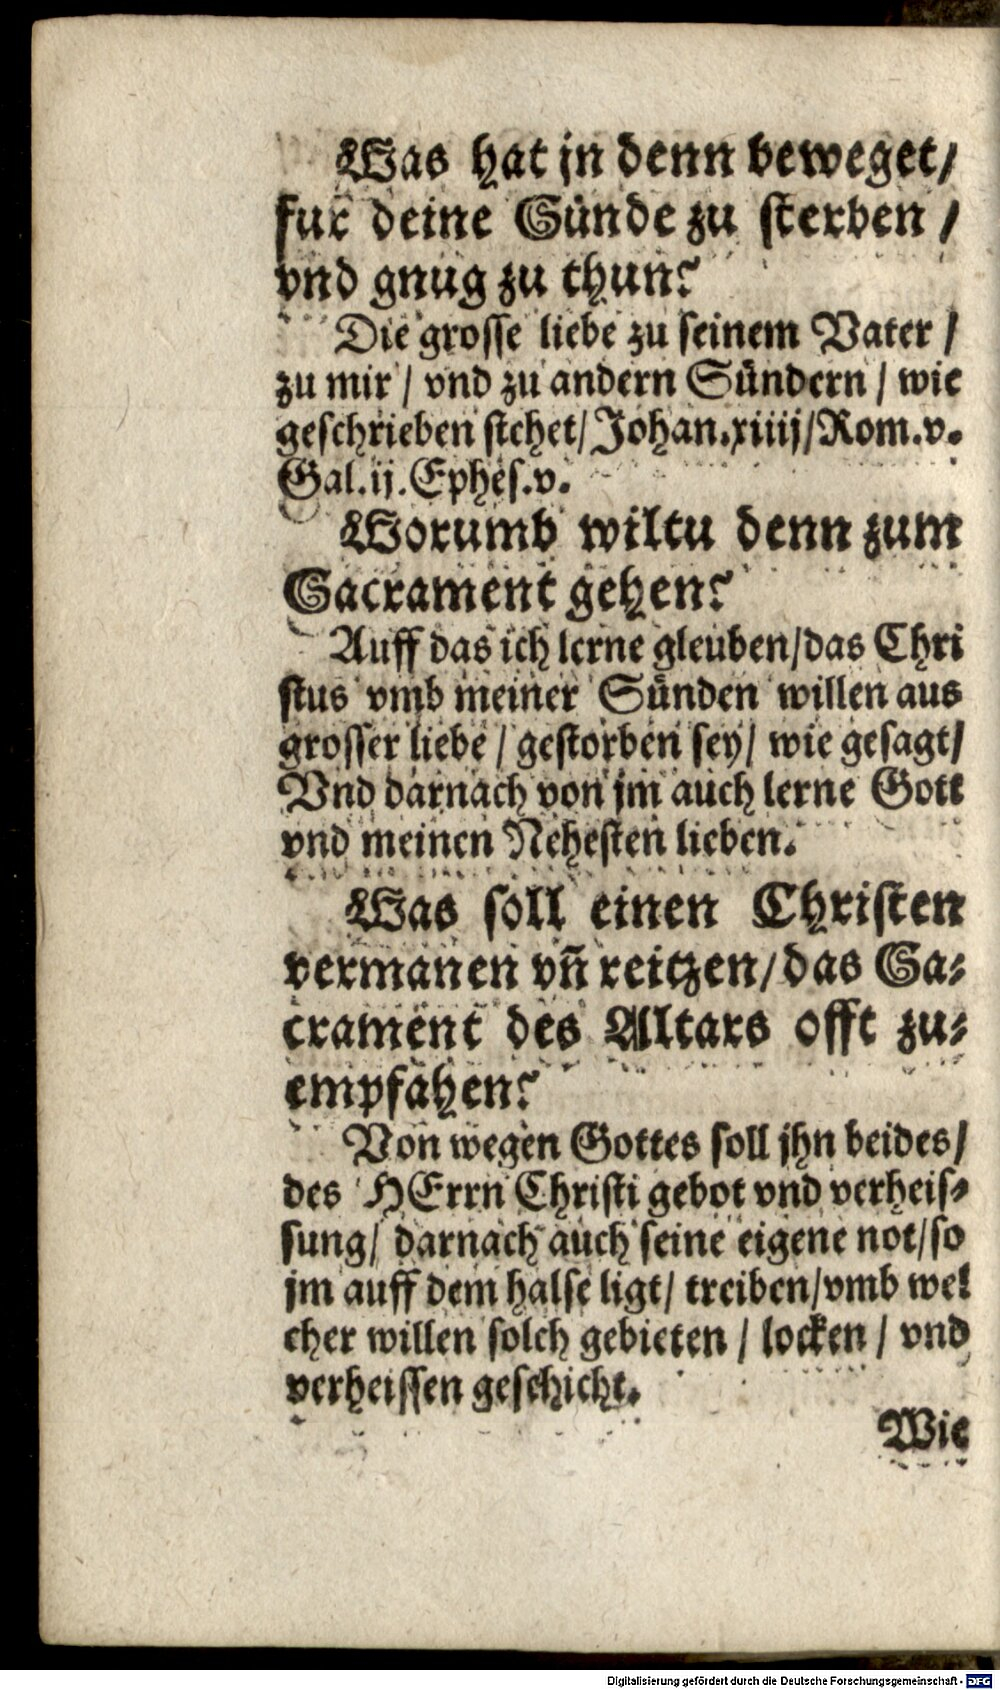 Was hat jn denn beweget/
fur deine Sünde zu sterben /
vnd gnug zu thun?
Die grosse liebe zu seinem Vater /
zu mir / vnd zu andern Sündern / wie
geschrieben stehet/ Johan.xiiij/ Rom.v.
Gal.ij. Ephes.v.
Worumb wiltu denn zum
Sacrament gehen?
Auff das ich lerne gleuben/das Chri
stus vmb meiner Sünden willen aus
grosser liebe / gestorben sey/ wie gesagt/
Vnd darnach von jm auch lerne Gott
vnd meinen Nehesten lieben.
Was soll einen Christen
vermanen vn̄ reitzen/das Sa⸗
crament des Altars offt zu⸗
empfahen?
Von wegen Gottes soll jhn beides/
des HErrn Christi gebot vnd verheis⸗
sung/ darnach auch seine eigene not/so
jm auff dem halse ligt/ treiben/vmb wel
cher willen solch gebieten / locken / vnd
verheissen geschicht.
Wie
Digitalisierung gefördert durch die Deutsche Forschungsgemeinschaft - DFG